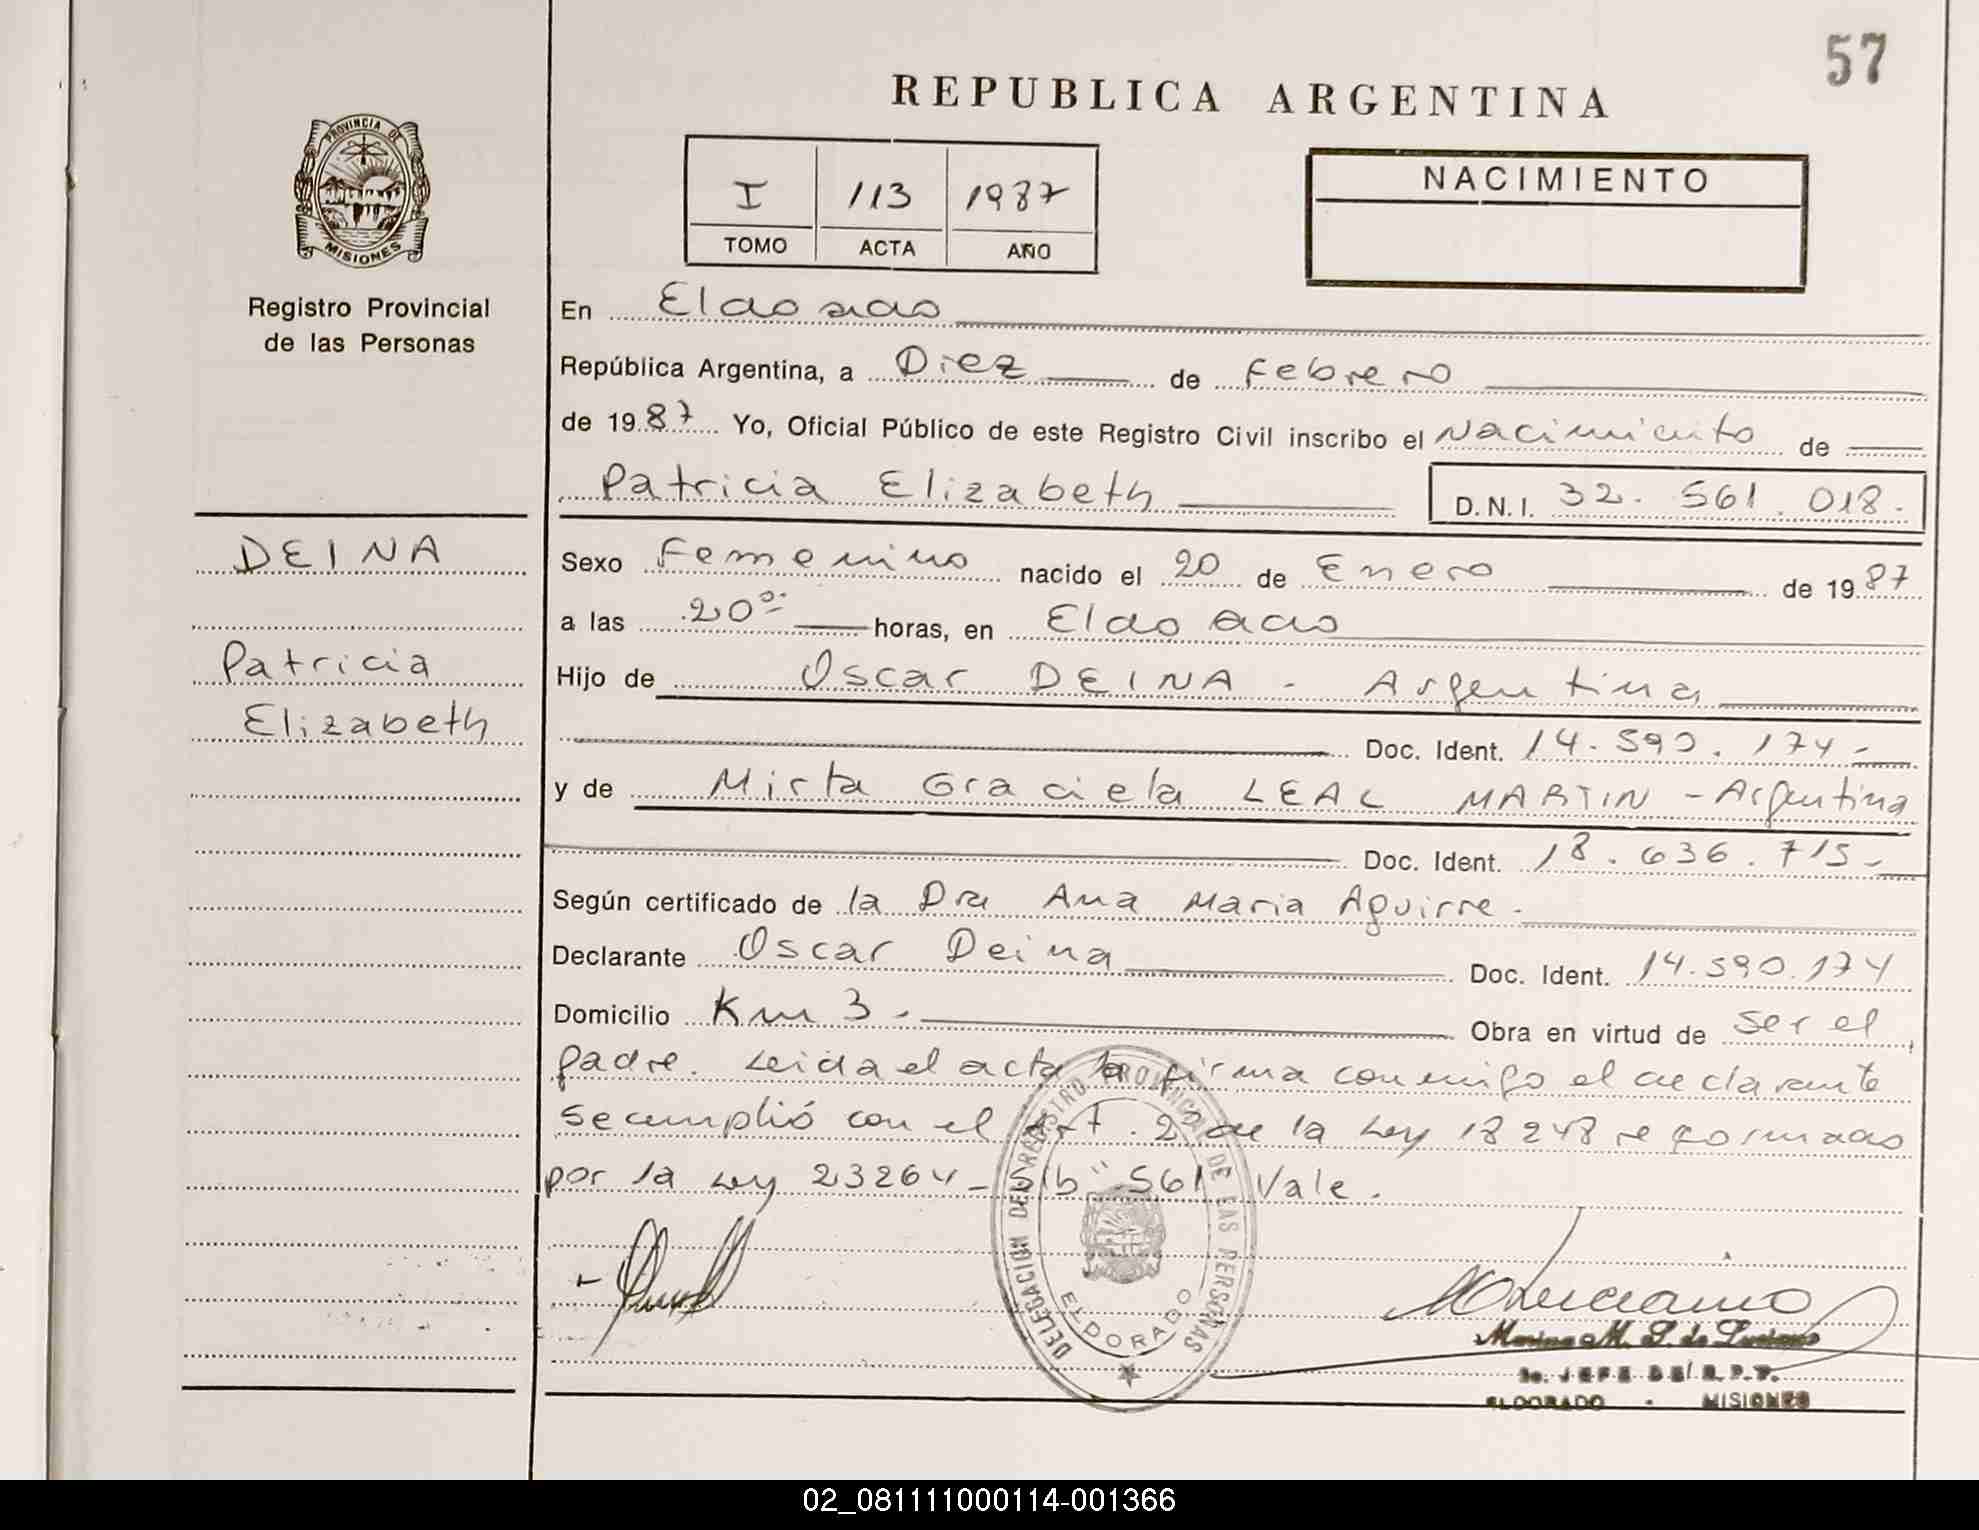 57
REPUBLICA ARGENTINA
PROVINCIA DE
MISIONES
Registro Provincial
de las Personas
I 113 1987
TOMO ACTA AÑO
NACIMIENTO
En Eldorado
República Argentina, a Diez de Febrero
de 1987 Yo, Oficial Público de este Registro Civil inscribo el Nacimiento de
Patricia Elizabeth D.N.I. 32.561.018.
DEINA
Patricia
Elizabeth
Sexo Femenino nacido el 20 de Enero de 1987
a las 20⁰⁰ horas, en Eldorado
Hijo de Oscar DEINA - Argentina
Doc. Ident. 14.590.174-
y de Mirta Graciela LEAL MARTIN - Argentina
Doc. Ident. 18.636.715-
Según certificado de la Dra Ana Maria Aguirre-
Declarante Oscar Deina Doc. Ident. 14.590.174
Domicilio Km 3- Obra en virtud de ser el
padre. Leida el acta la firma conmigo el declarante
se cumplió con el Art. 2 de la Ley 18248 reformado
por la Ley 23264-S/b "561 Vale.
DELEGACION DEL REGISTRO PROVINCIAL DE LAS PERSONAS
ELDORADO
M. S. de Luciano
JEFE DEL R.P.P.
ELDORADO - MISIONES
02_081111000114-001366